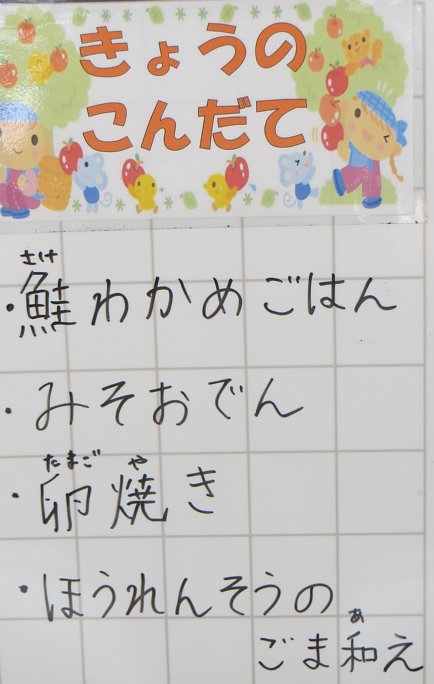 きょうの
こんだて
さけ
・鮭わかめごはん
・みそおでん
たまご や
・卵焼き
・ほうれんそうの
あ
ごま和え